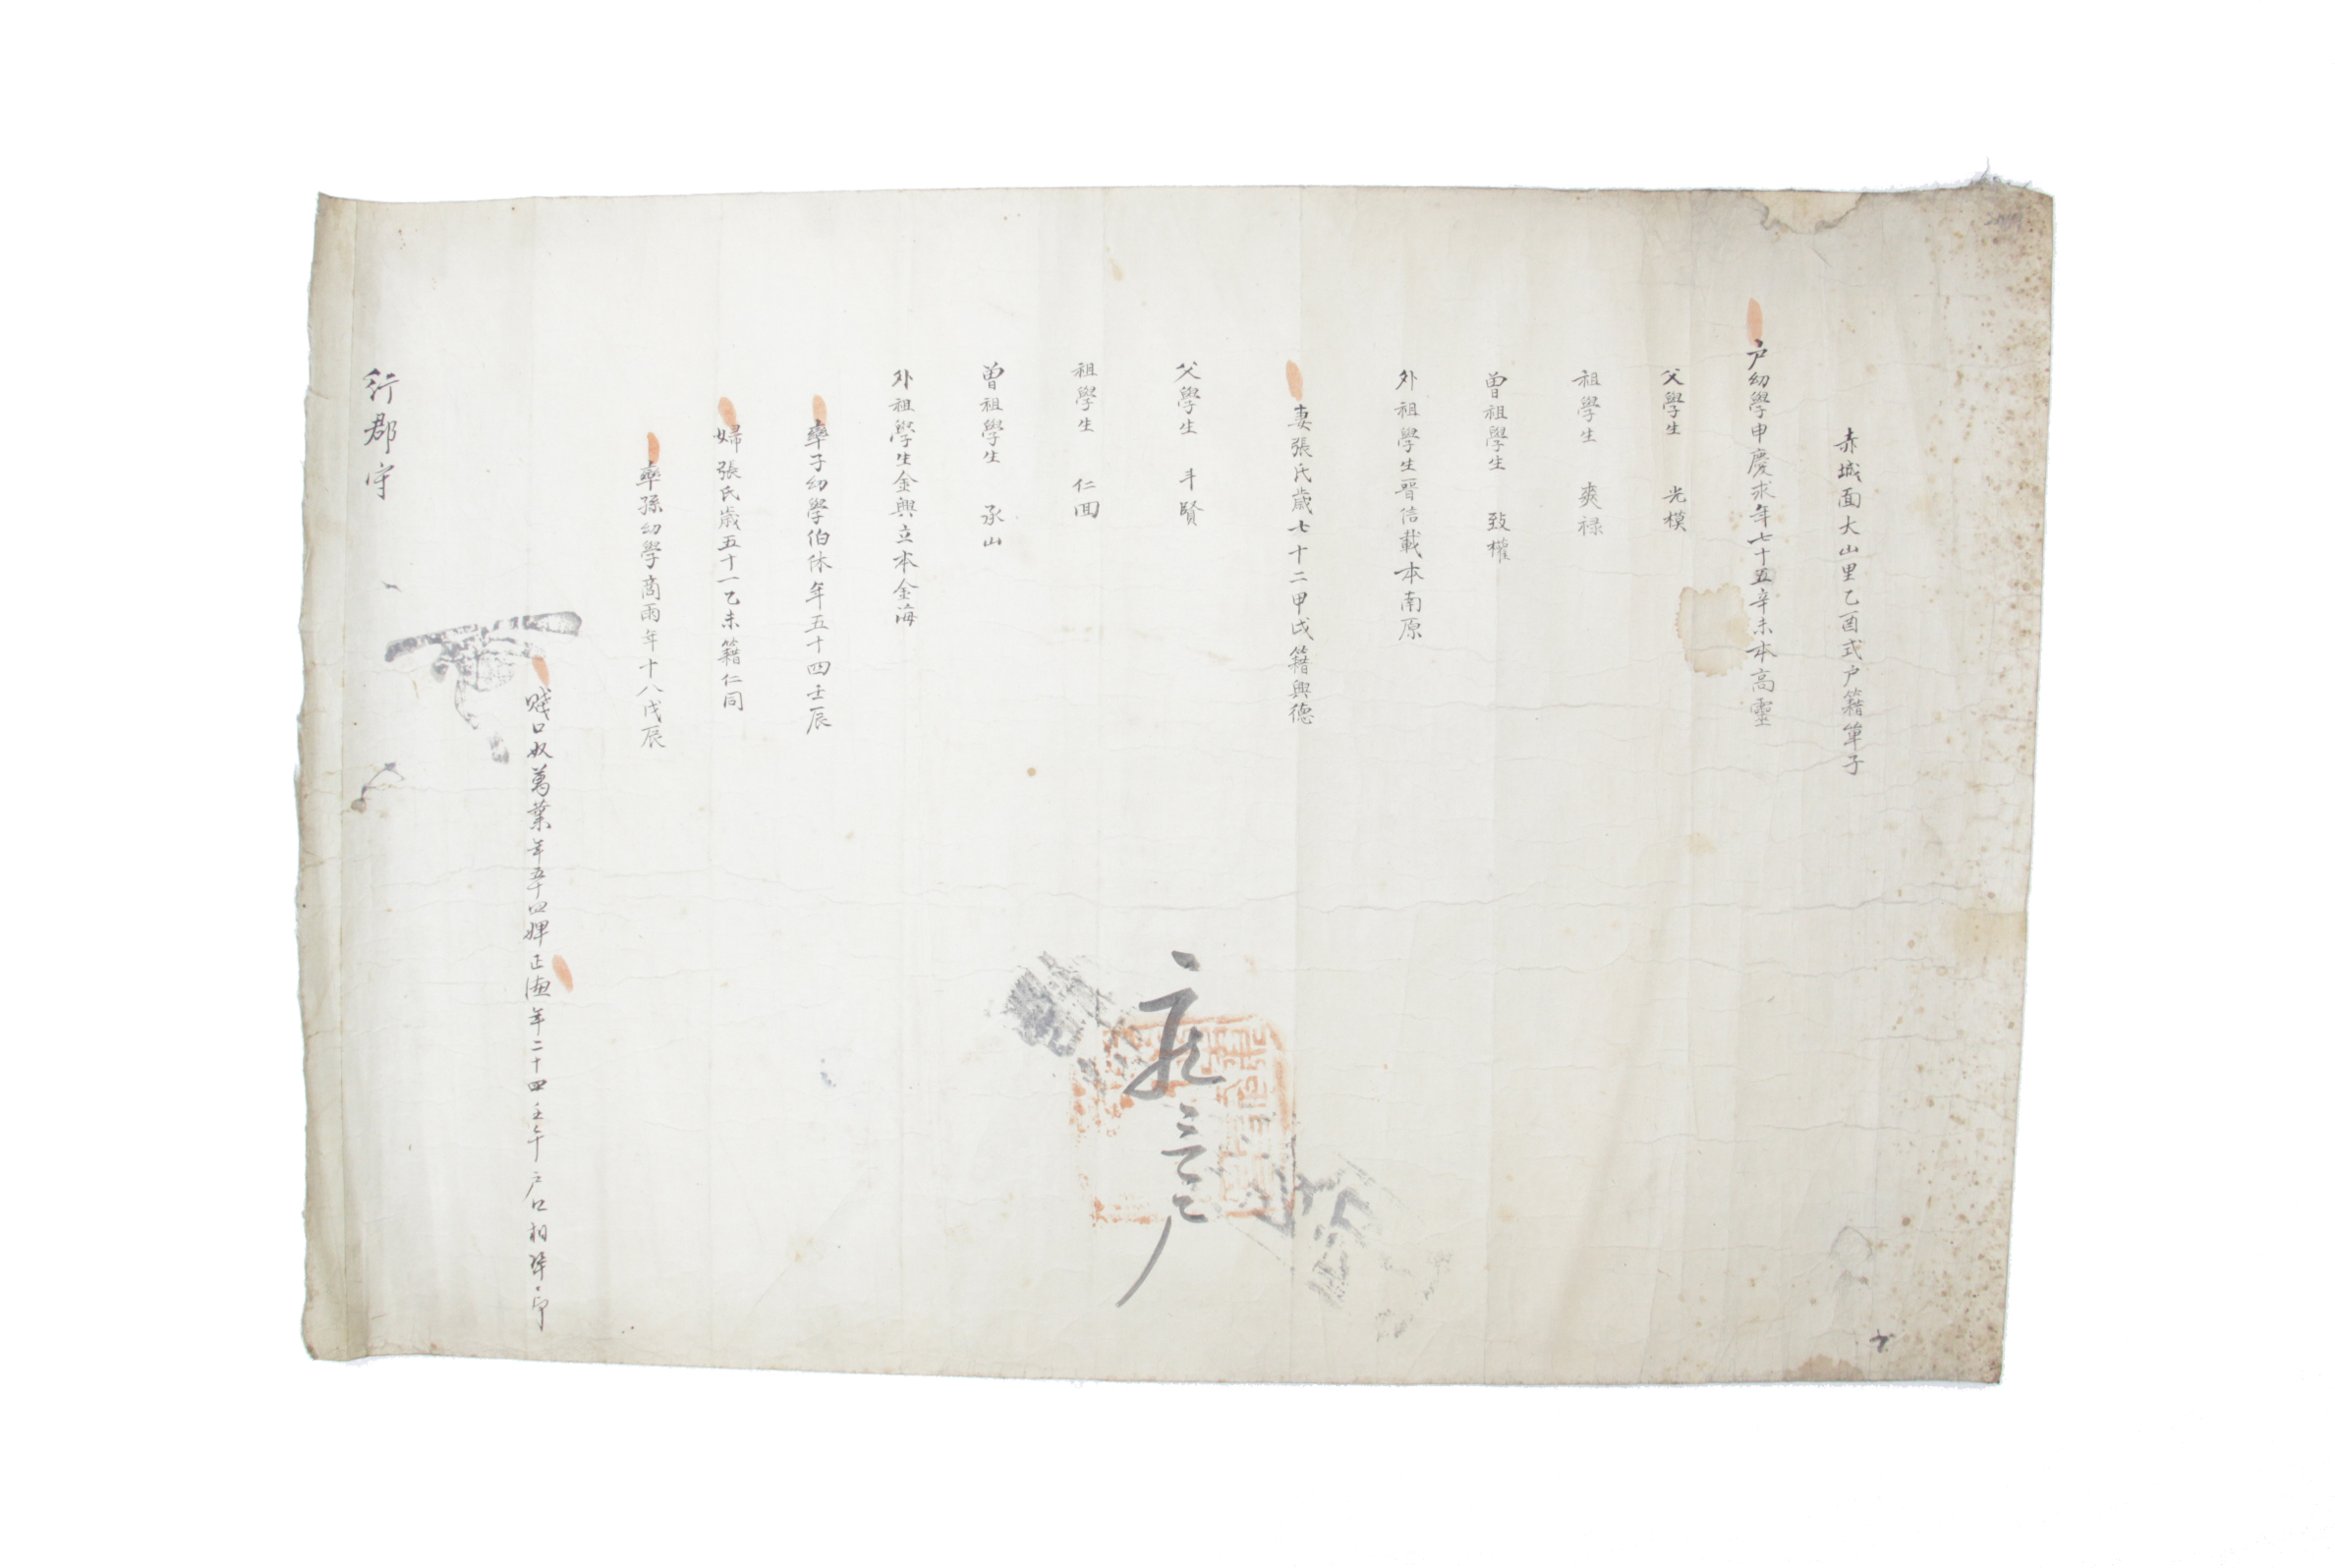 赤城面大山里乙酉式户籍單子
户幼學申慶求年七十五辛未本高靈
父學生 光模
祖學生 爽禄
曽祖學生 致權
外祖學生晉佶載本南原
妻張氏歲七十二甲戌籍興德
父學生 斗賢
祖學生 仁囬
曽祖學生 承山
外祖學生金興立本金海
率子幼學伯休年五十四壬辰
婦張氏歲五十一乙未籍仁同
率孫幼學商雨年十八戊辰
賤口奴萬葉年五十四婢正德年二十四壬午户口相準印
行郡守